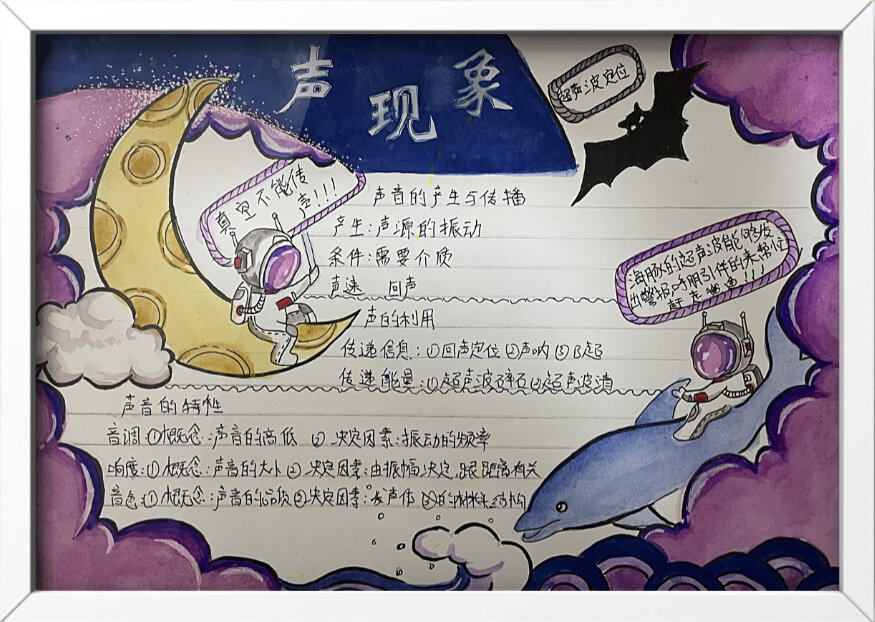 声现象
超声波定位
真空不能传
声!!!
声音的产生与传播
产生:声源的振动
条件:需要介质
声速 回声
海豚的超声波能够发
出警报,呼朋引伴的来帮忙
赶走鲨鱼!!!
声的利用
传递信息:①回声定位②声呐③B超
传递能量:①超声波碎石②超声波清
声音的特性
音调:①概念:声音的高低 ② 决定因素:振动的频率
响度:①概念:声音的大小②决定因素:由振幅决定,跟距离有关
音色:①概念:声音的品质②决定因素:发声体 的材料结构